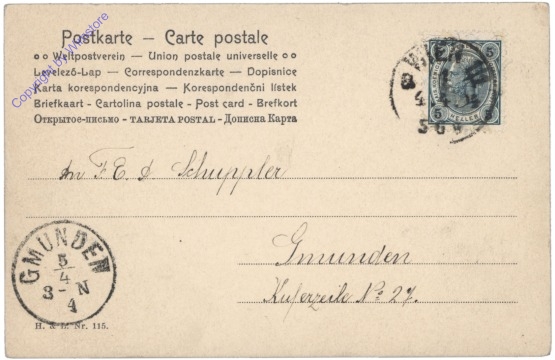 Postkarte — Carte postale
Weltpostverein — Union postale universelle
Levelező-Lap — Correspondenzkarte — Dopisnice
Karta korespondencyjna — Korespondenční lístek
Briefkaart - Cartolina postale - Post card - Brefkort
Открытое-письмо - TARJETA POSTAL - Дописна Карта
Copyright by Whitestore
WIEN
5 5
5 HELLER
An F. E. A Schuppler
Gmunden
Kuferzeile No 27.
GMUNDEN
5
4
3 - N
4
H. & L. Nr. 115.